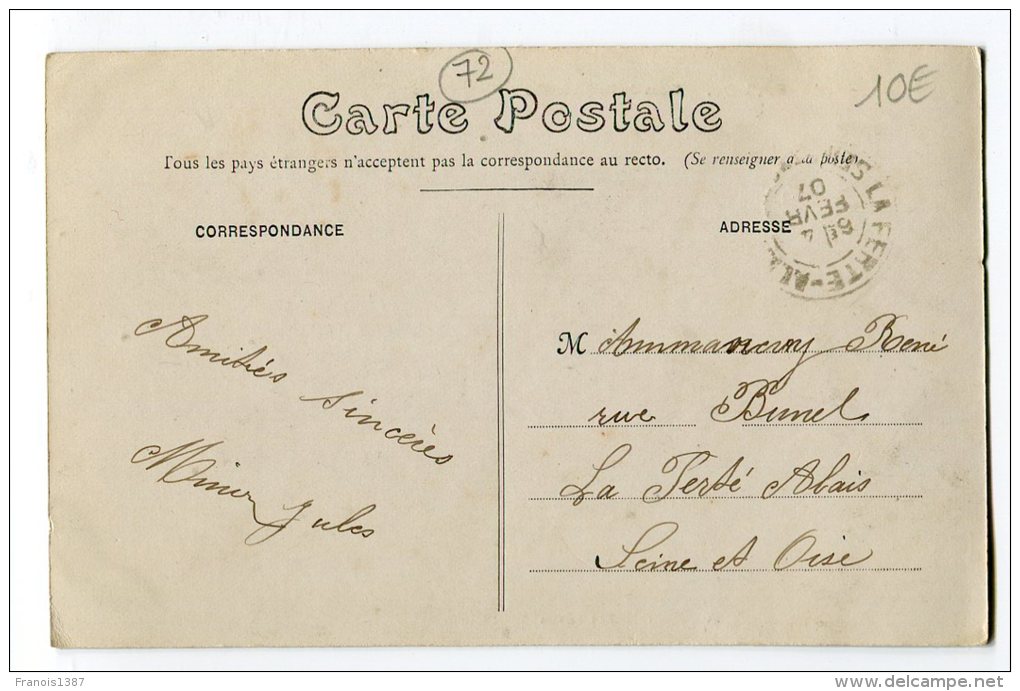 72
10€
Carte Postale
Tous les pays étrangers n'acceptent pas la correspondance au recto. (Se renseigner à la poste)
CORRESPONDANCE
ADRESSE
LA FERTE-AL
6E
4
FEVR
07
Amitiés
sincères
Jules
M René
rue Bunel
La Ferté Alais
Seine et Oise
Franois1387
www.delcampe.net